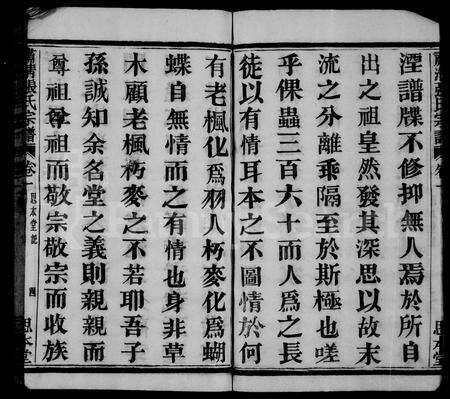 湮譜牒不修抑無人焉於所自
出之祖皇然發其深思以故末
流之分離乖隔至於斯極也嗟
乎倮蟲三百六十而人爲之長
徒以有情耳本之不圖情於何
有老楓化爲羽人朽麥化爲蝴
蝶自無情而之有情也身非草
木顧老楓朽麥之不若耶吾子
孫誠知余名堂之義則親親而
尊祖尊祖而敬宗敬宗而收族
張氏宗譜 卷一 思本堂記 四 思本堂